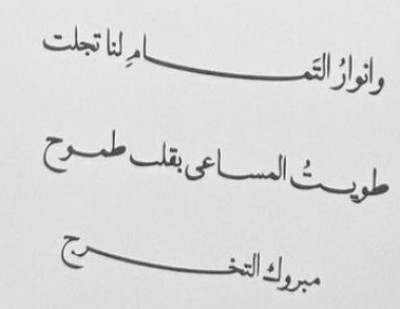 وانوارُ التَمـــــامِ لنا تجلت
طويـــتُ المســاعي بقلب طمــوح
مبروك التخـــــرج